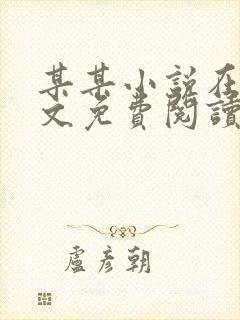 某某小說在
文免費閱讀
盧彥朝